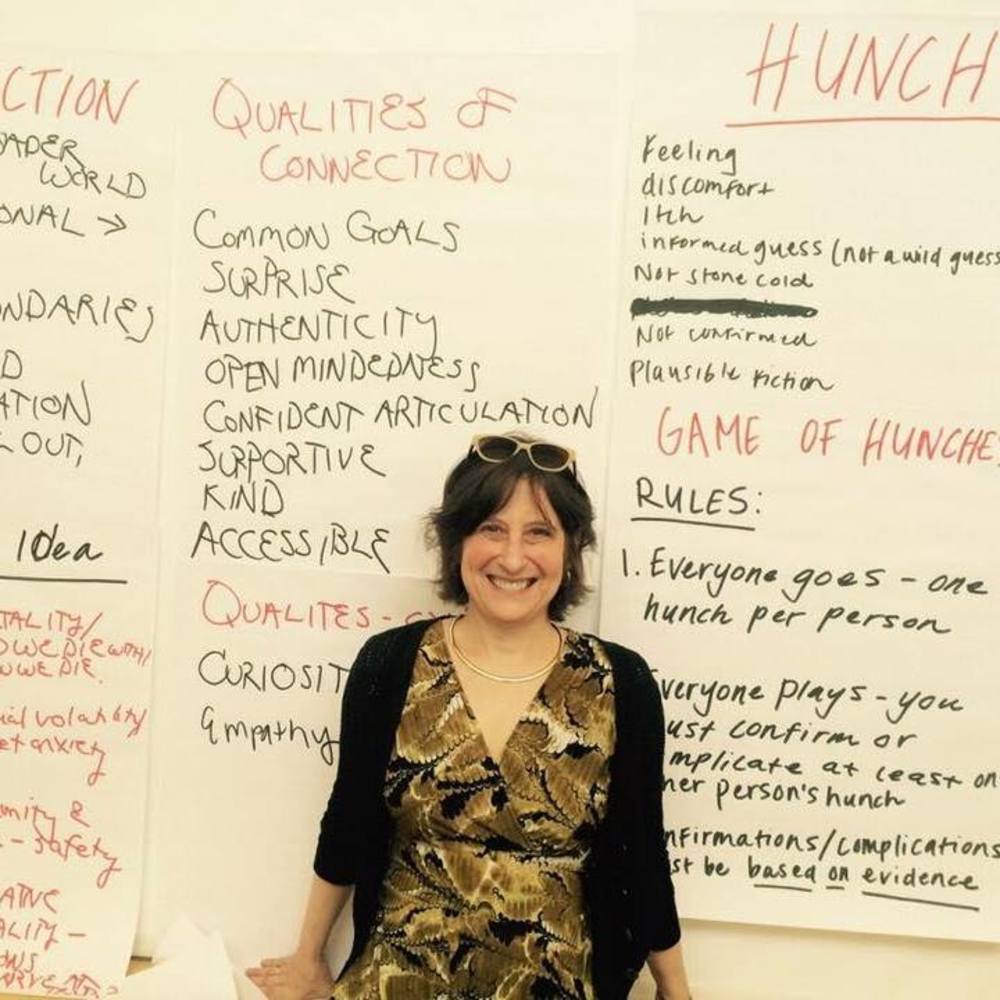 CTION
WORLD
ONAL →
NDARIES
D
ATION
OUT,
Idea
TALITY/
WE DIE.
volatility
anxiety
&
- Safety
ALITY -
QUALITIES OF
CONNECTION
COMMON GOALS
SURPRISE
AUTHENTICITY
OPEN MINDEDNESS
CONFIDENT ARTICULATION
SUPPORTIVE
KIND
ACCESSIBLE
QUALITES -
CURIOSIT
Empathy
HUNCH
Feeling
discomfort
Itch
informed guess (not a wild guess
Not stone cold
Not confirmed
Plausible Fiction
GAME OF HUNCHES
RULES:
1. Everyone goes - one
hunch per person
veryone plays - you
ust confirm or
mplicate at least on
her person's hunch
nfirmations/complications
st be based on evidence